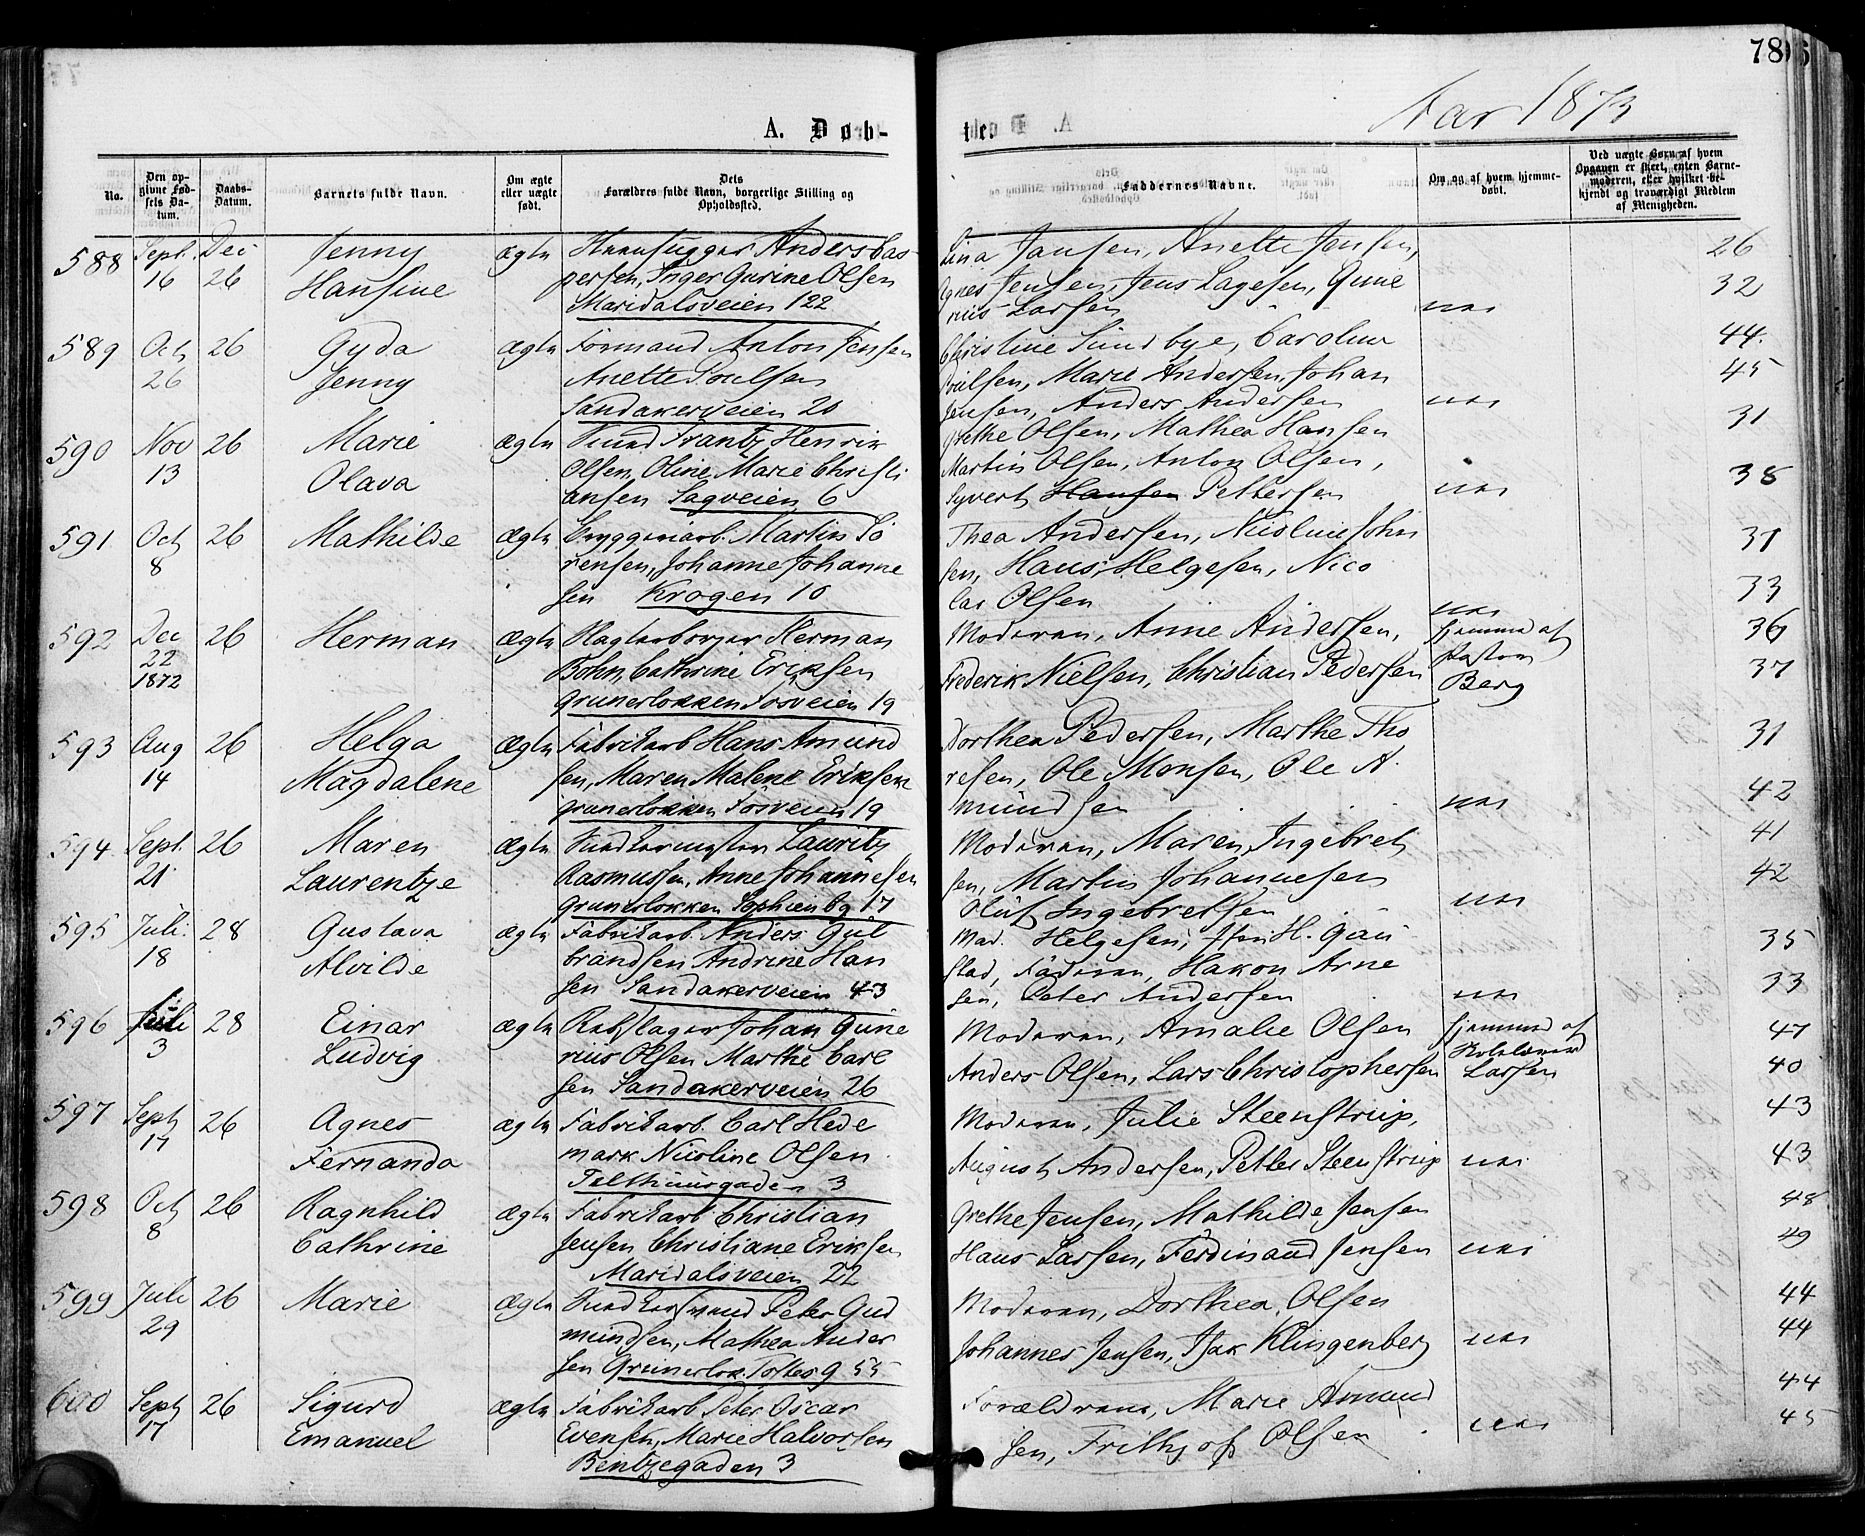 78
Aar 1873
A. Døb-
te.
No.
Den op-
givne Fød-
sels Da-
tum.
Daabs-
Datum.
Barnets fulde Navn.
Om ægte
eller uægte
født.
Dets
Forældres fulde Navn, borgerlige Stilling og
Opholdssted.
Faddernes Navne.
Om og af hvem hjemme-
døbt.
Ved uægte Børn af hvem
Opgaven er skeet, enten Barne-
moderen, eller hvilket be-
kjendt og troværdigt Medlem
af Menigheden.
588 Sept. 16 Dec 26 Jenny Hansine ægte
Anders Cas-
persen, Inger Gurine Olsen
Maridalsveien 122
Lina Jansen, Anette Jensen,
Agnes Jensen, Jens Lagesen, Gune
rius Larsen
nei
26
32
589 Oct 26 26 Gyda Jenny ægte
Formand Anton Jensen
Anette Poulsen
Sandakerveien 20
Christine Sundbye, Caroline
Poulsen, Marie Andersen, Johan
Jensen, Anders Andersen
nei
44.
45
590 Nov 13 26 Marie Olava ægte
Svend Frantz Henrik
Olsen, Oline Marie Christi
ansen Sagveien 6
Grethe Olsen, Mathea Hansen
Martin Olsen, Anton Olsen,
Syvert Hansen Pettersen
nei
31
38
591 Oct 8 26 Mathilde ægte
Bryggeriarb. Martin Sö
rensen, Johanne Johanne
sen Krogen 10
Thea Andersen, Nicoline Johan
sen, Hans Helgesen, Nico
lai Olsen
nei
31
33
592 Dec 22 1872 26 Herman ægte
Herman
Bohn, Cathrine Eriksen
Grunerlokken Fosveien 19
Moderen, Anne Andersen,
Frederik Nielsen, Christian Pedersen
Hjemme af
Pastor
Berg
36
37
593 Aug 14 26 Helga Magdalene ægte
Fabrikarb Hans Amund
sen, Maren Malene Eriksen
Grunerlokken Fosveien 19
Dorthea Pedersen, Marthe Tho
resen, Ole Monsen, Ole A-
mundsen
nei
31
42
594 Sept. 21 26 Maren Laurentze ægte
Snedkermester Lauritz
Rasmussen, Anne Johannesen
Grunerlokken Sophienbg 17
Moderen, Maren Ingebret
sen, Martin Johannesen
Oluf Ingebretsen
nei
41
42
595 Juli 18 28 Gustava Alvilde ægte
Fabrikarb. Anders Gul
brandsen Andrine Han
sen Sandakerveien 43
Mad. Helgesen, H. Gau
stad, Faderen, Hakon Arne
sen, Peter Andersen
nei
35
33
596 Juli 3 28 Einar Ludvig ægte
Rebslager Johan Gune
rius Olsen Marthe Carl
sen Sandakerveien 26
Moderen, Amalie Olsen
Anders Olsen, Lars Christophersen
Hjemme af
Larsen
47
40
597 Sept 17 26 Agnes Fernanda ægte
Fabrikarb. Carl Hede
mark Nicoline Olsen
Falthinsgaden 3
Moderen, Julie Steenstrup,
August Andersen, Petter Steenstrup
nei
43
43
598 Oct 8 26 Ragnhild Cathrine ægte
Fabrikarb Christian
Jensen Christiane Eriksen
Maridalsveien 22
Grethe Jensen, Mathilde Jensen
Hans Larsen, Ferdinand Jensen
nei
48
49
599 Juli 29 26 Marie ægte
Snedkersvend Peter Gud
mundsen, Mathea Ander
sen Grunerlok. Toftes G 55
Moderen, Dorthea Olsen
Johannes Jensen, Isak Klingenberg
nei
44
44
600 Sept 17 26 Sigurd Emanuel ægte
Fabrikarb Peter Oscar
Evensen, Marie Halvorsen
Bentzegaden 3
Forældrene, Marie Amund
sen, Frithjof Olsen
nei
44
45